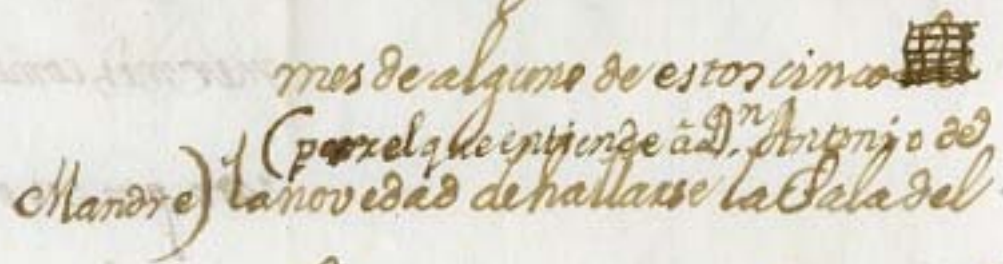 mes de alguno de estos cinco
(por el que entiende à Dn. Antonio de
Mandre) la novedad de hallarse la Sala del